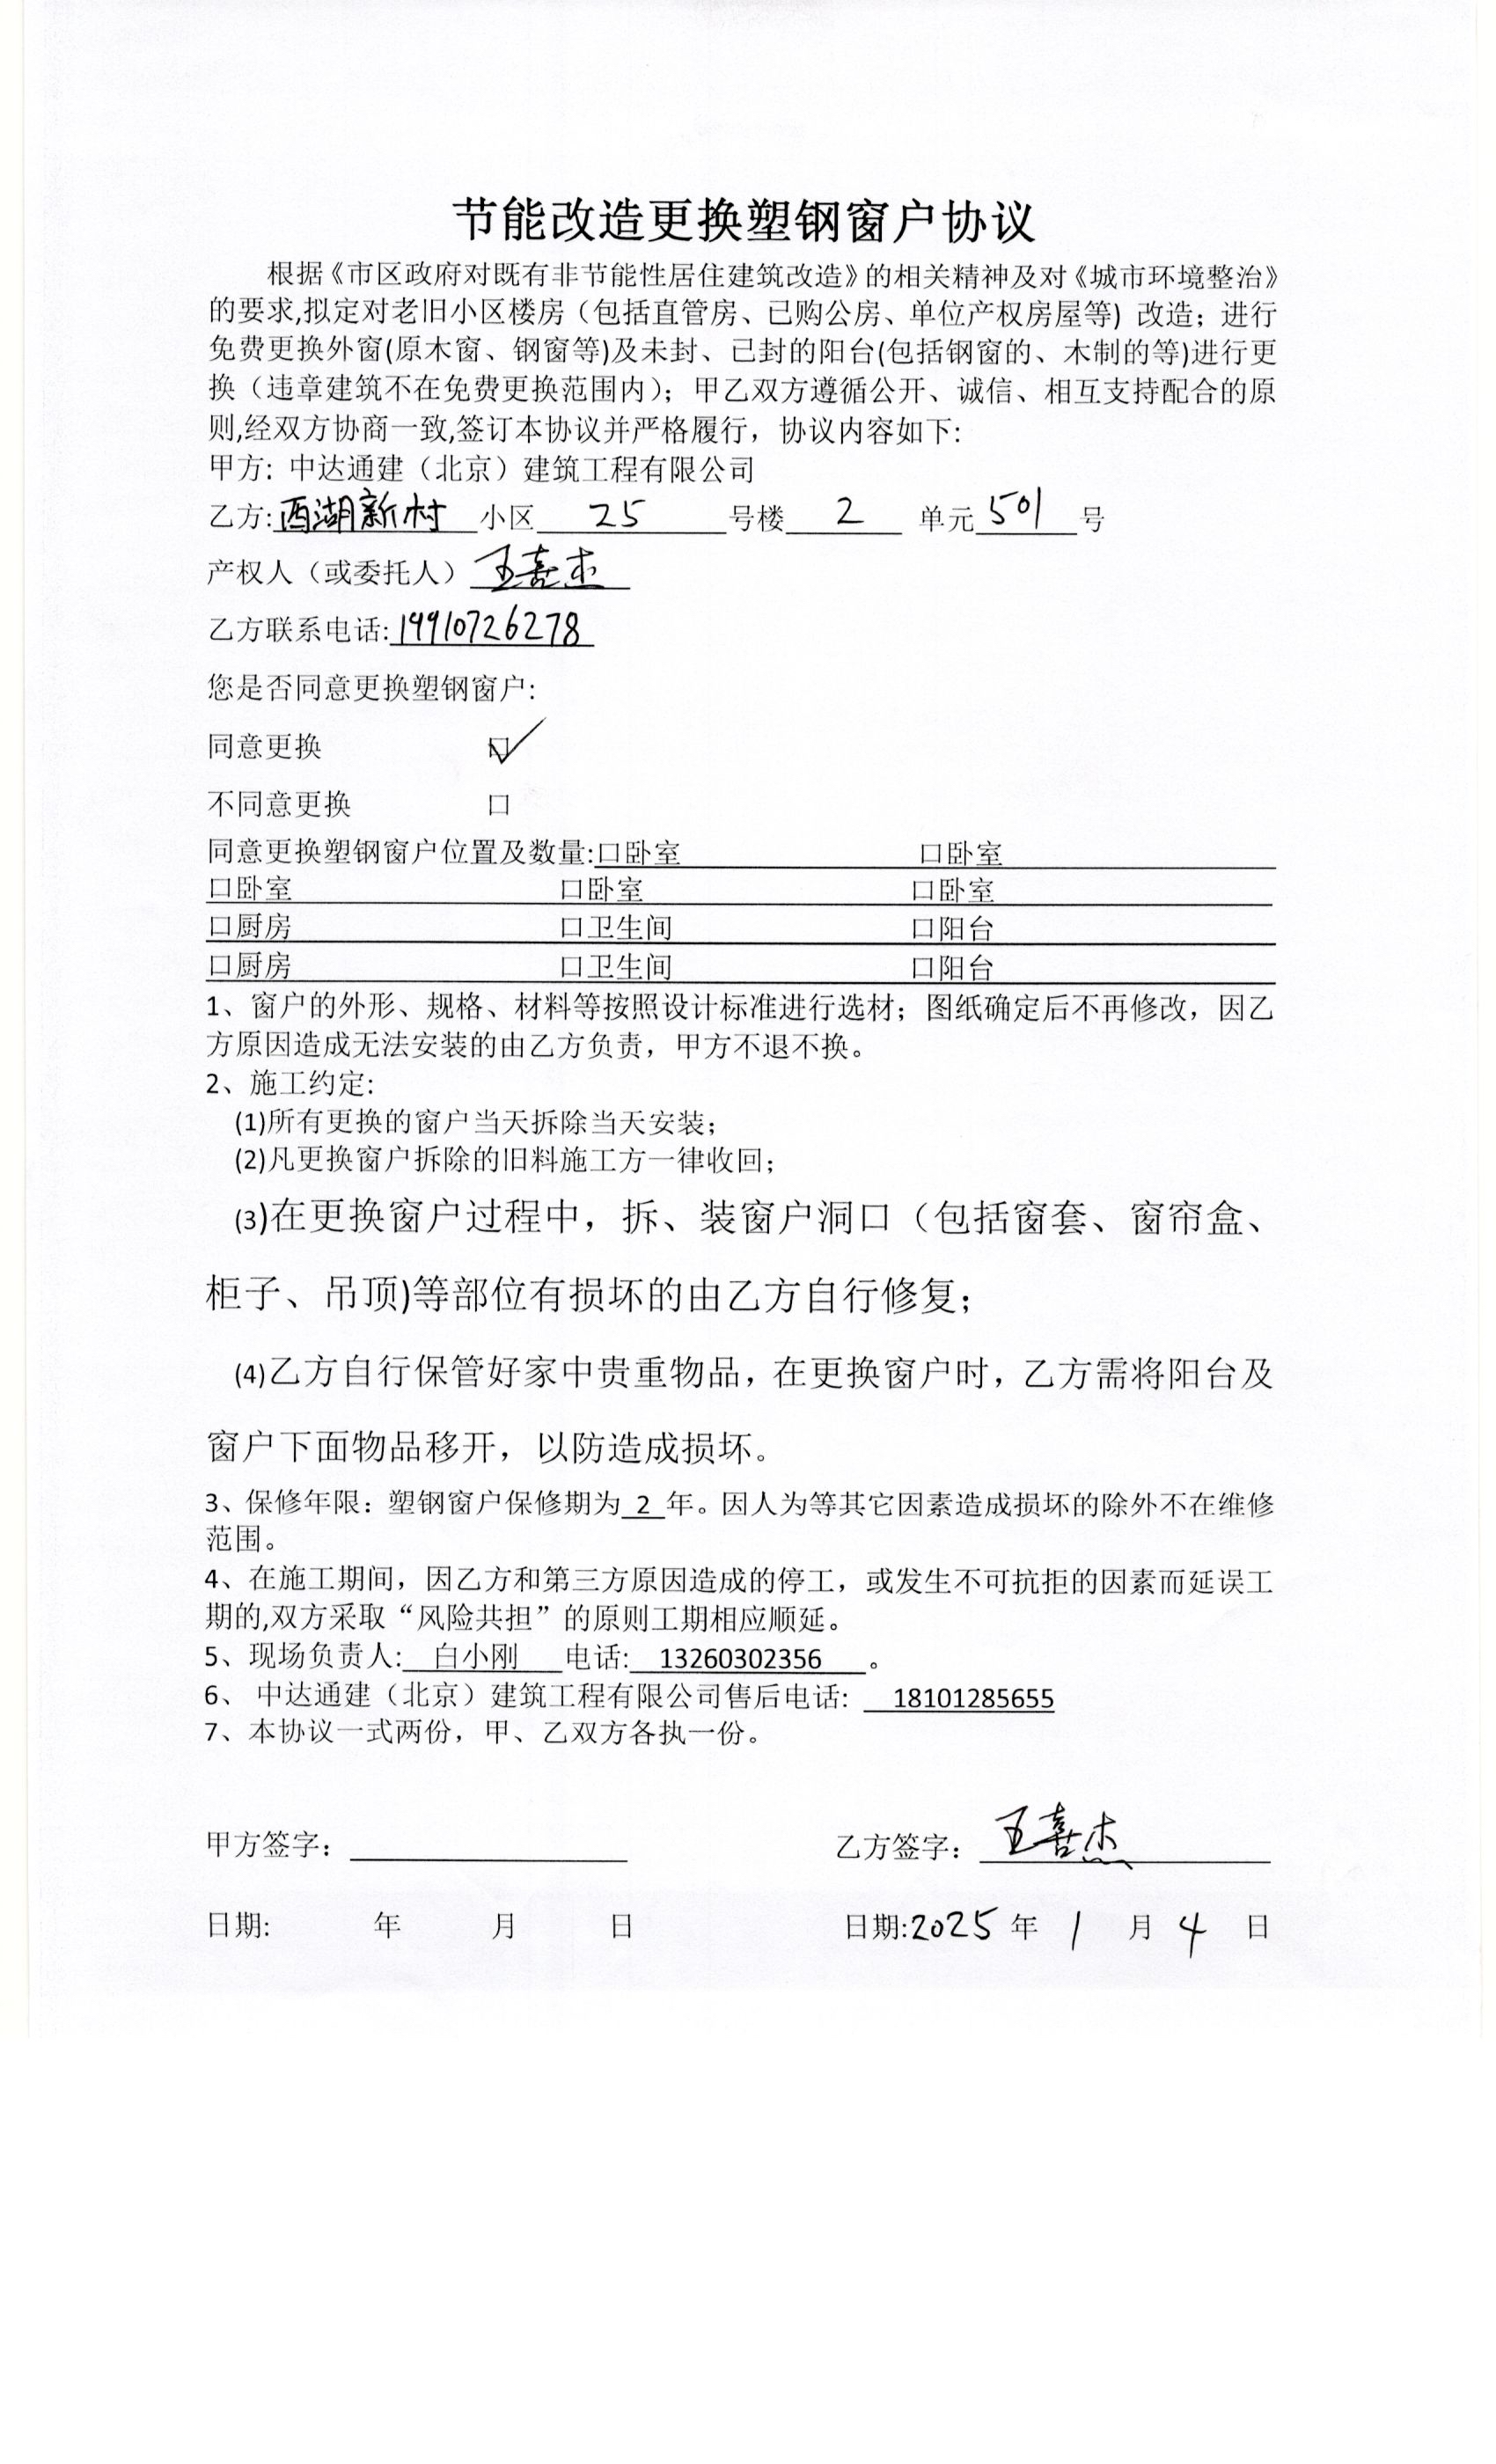 节能改造更换塑钢窗户协议
根据《市区政府对既有非节能性居住建筑改造》的相关精神及对《城市环境整治》
的要求,拟定对老旧小区楼房（包括直管房、已购公房、单位产权房屋等）改造；进行
免费更换外窗(原木窗、钢窗等)及未封、已封的阳台(包括钢窗的、木制的等)进行更
换（违章建筑不在免费更换范围内）；甲乙双方遵循公开、诚信、相互支持配合的原
则,经双方协商一致,签订本协议并严格履行，协议内容如下:
甲方: 中达通建（北京）建筑工程有限公司
乙方: 西湖新村 小区 25 号楼 2 单元 501 号
产权人（或委托人） 王喜杰
乙方联系电话: 19910726278
您是否同意更换塑钢窗户:
同意更换 ☑
不同意更换 口
同意更换塑钢窗户位置及数量:口卧室 口卧室
口卧室 口卧室 口卧室
口厨房 口卫生间 口阳台
口厨房 口卫生间 口阳台
1、窗户的外形、规格、材料等按照设计标准进行选材；图纸确定后不再修改，因乙
方原因造成无法安装的由乙方负责，甲方不退不换。
2、施工约定:
(1)所有更换的窗户当天拆除当天安装；
(2)凡更换窗户拆除的旧料施工方一律收回；
(3)在更换窗户过程中，拆、装窗户洞口（包括窗套、窗帘盒、
柜子、吊顶)等部位有损坏的由乙方自行修复；
(4)乙方自行保管好家中贵重物品，在更换窗户时，乙方需将阳台及
窗户下面物品移开，以防造成损坏。
3、保修年限：塑钢窗户保修期为 2 年。因人为等其它因素造成损坏的除外不在维修
范围。
4、在施工期间，因乙方和第三方原因造成的停工，或发生不可抗拒的因素而延误工
期的,双方采取“风险共担”的原则工期相应顺延。
5、现场负责人: 白小刚 电话: 13260302356 。
6、 中达通建（北京）建筑工程有限公司售后电话: 18101285655
7、本协议一式两份，甲、乙双方各执一份。
甲方签字： 乙方签字： 王喜杰
日期: 年 月 日 日期:2025 年 1 月 4 日